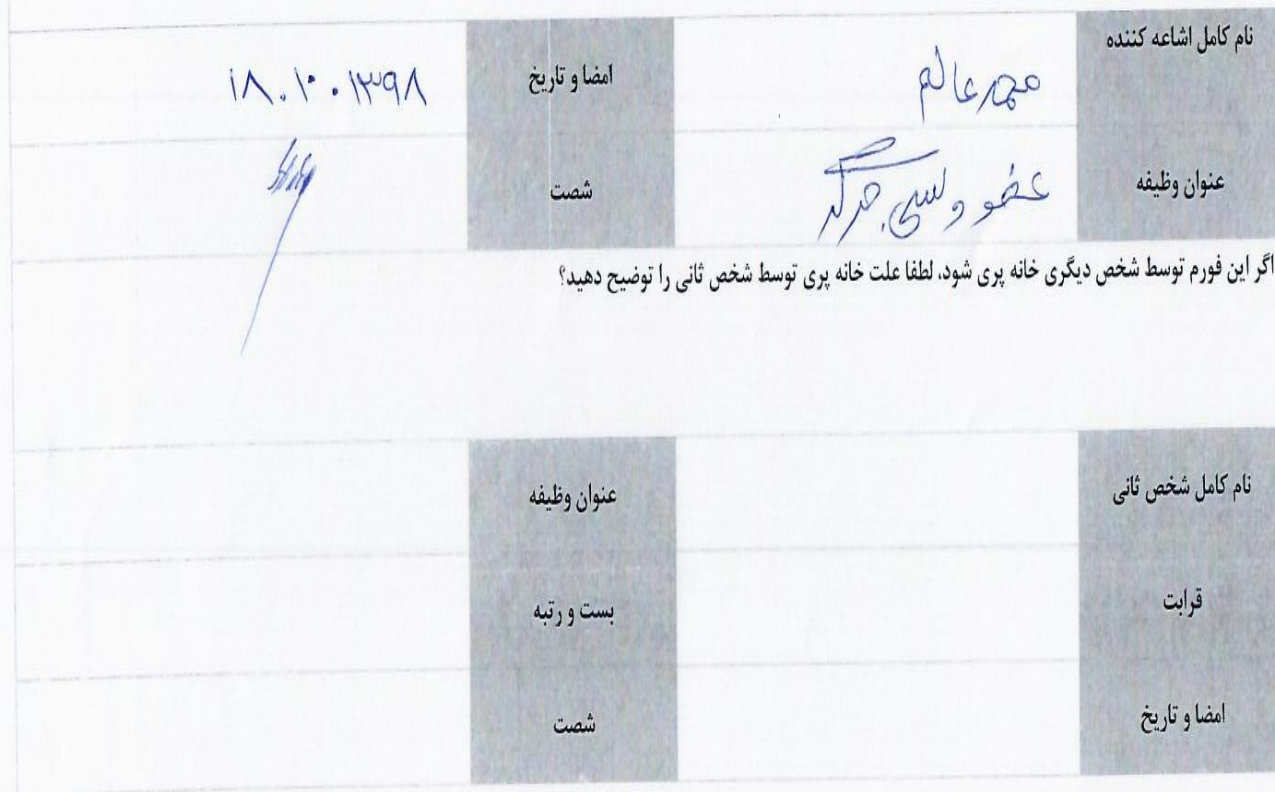 نام کامل اشاعه کننده محمد عالم امضا و تاریخ ۱۸.۱۰.۱۳۹۸
عنوان وظیفه عضو ولسی جرگه شصت
اگر این فورم توسط شخص دیگری خانه پری شود، لطفا علت خانه پری توسط شخص ثانی را توضیح دهید؟
نام کامل شخص ثانی عنوان وظیفه
قرابت بست و رتبه
امضا و تاریخ شصت